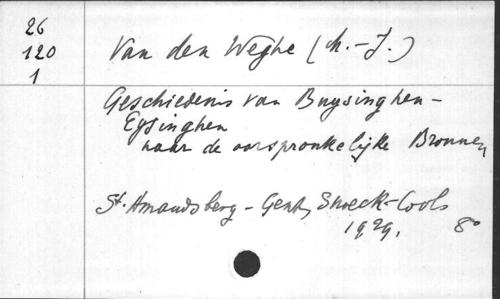 26
120
1
Van den Weghe (M.-J.)
Geschiedenis van Buysinghen-
Eysinghen
naar de oorspronkelijke Bronnen
St. Amandsberg - Gent, Snoeck-Cools
1929. 8°